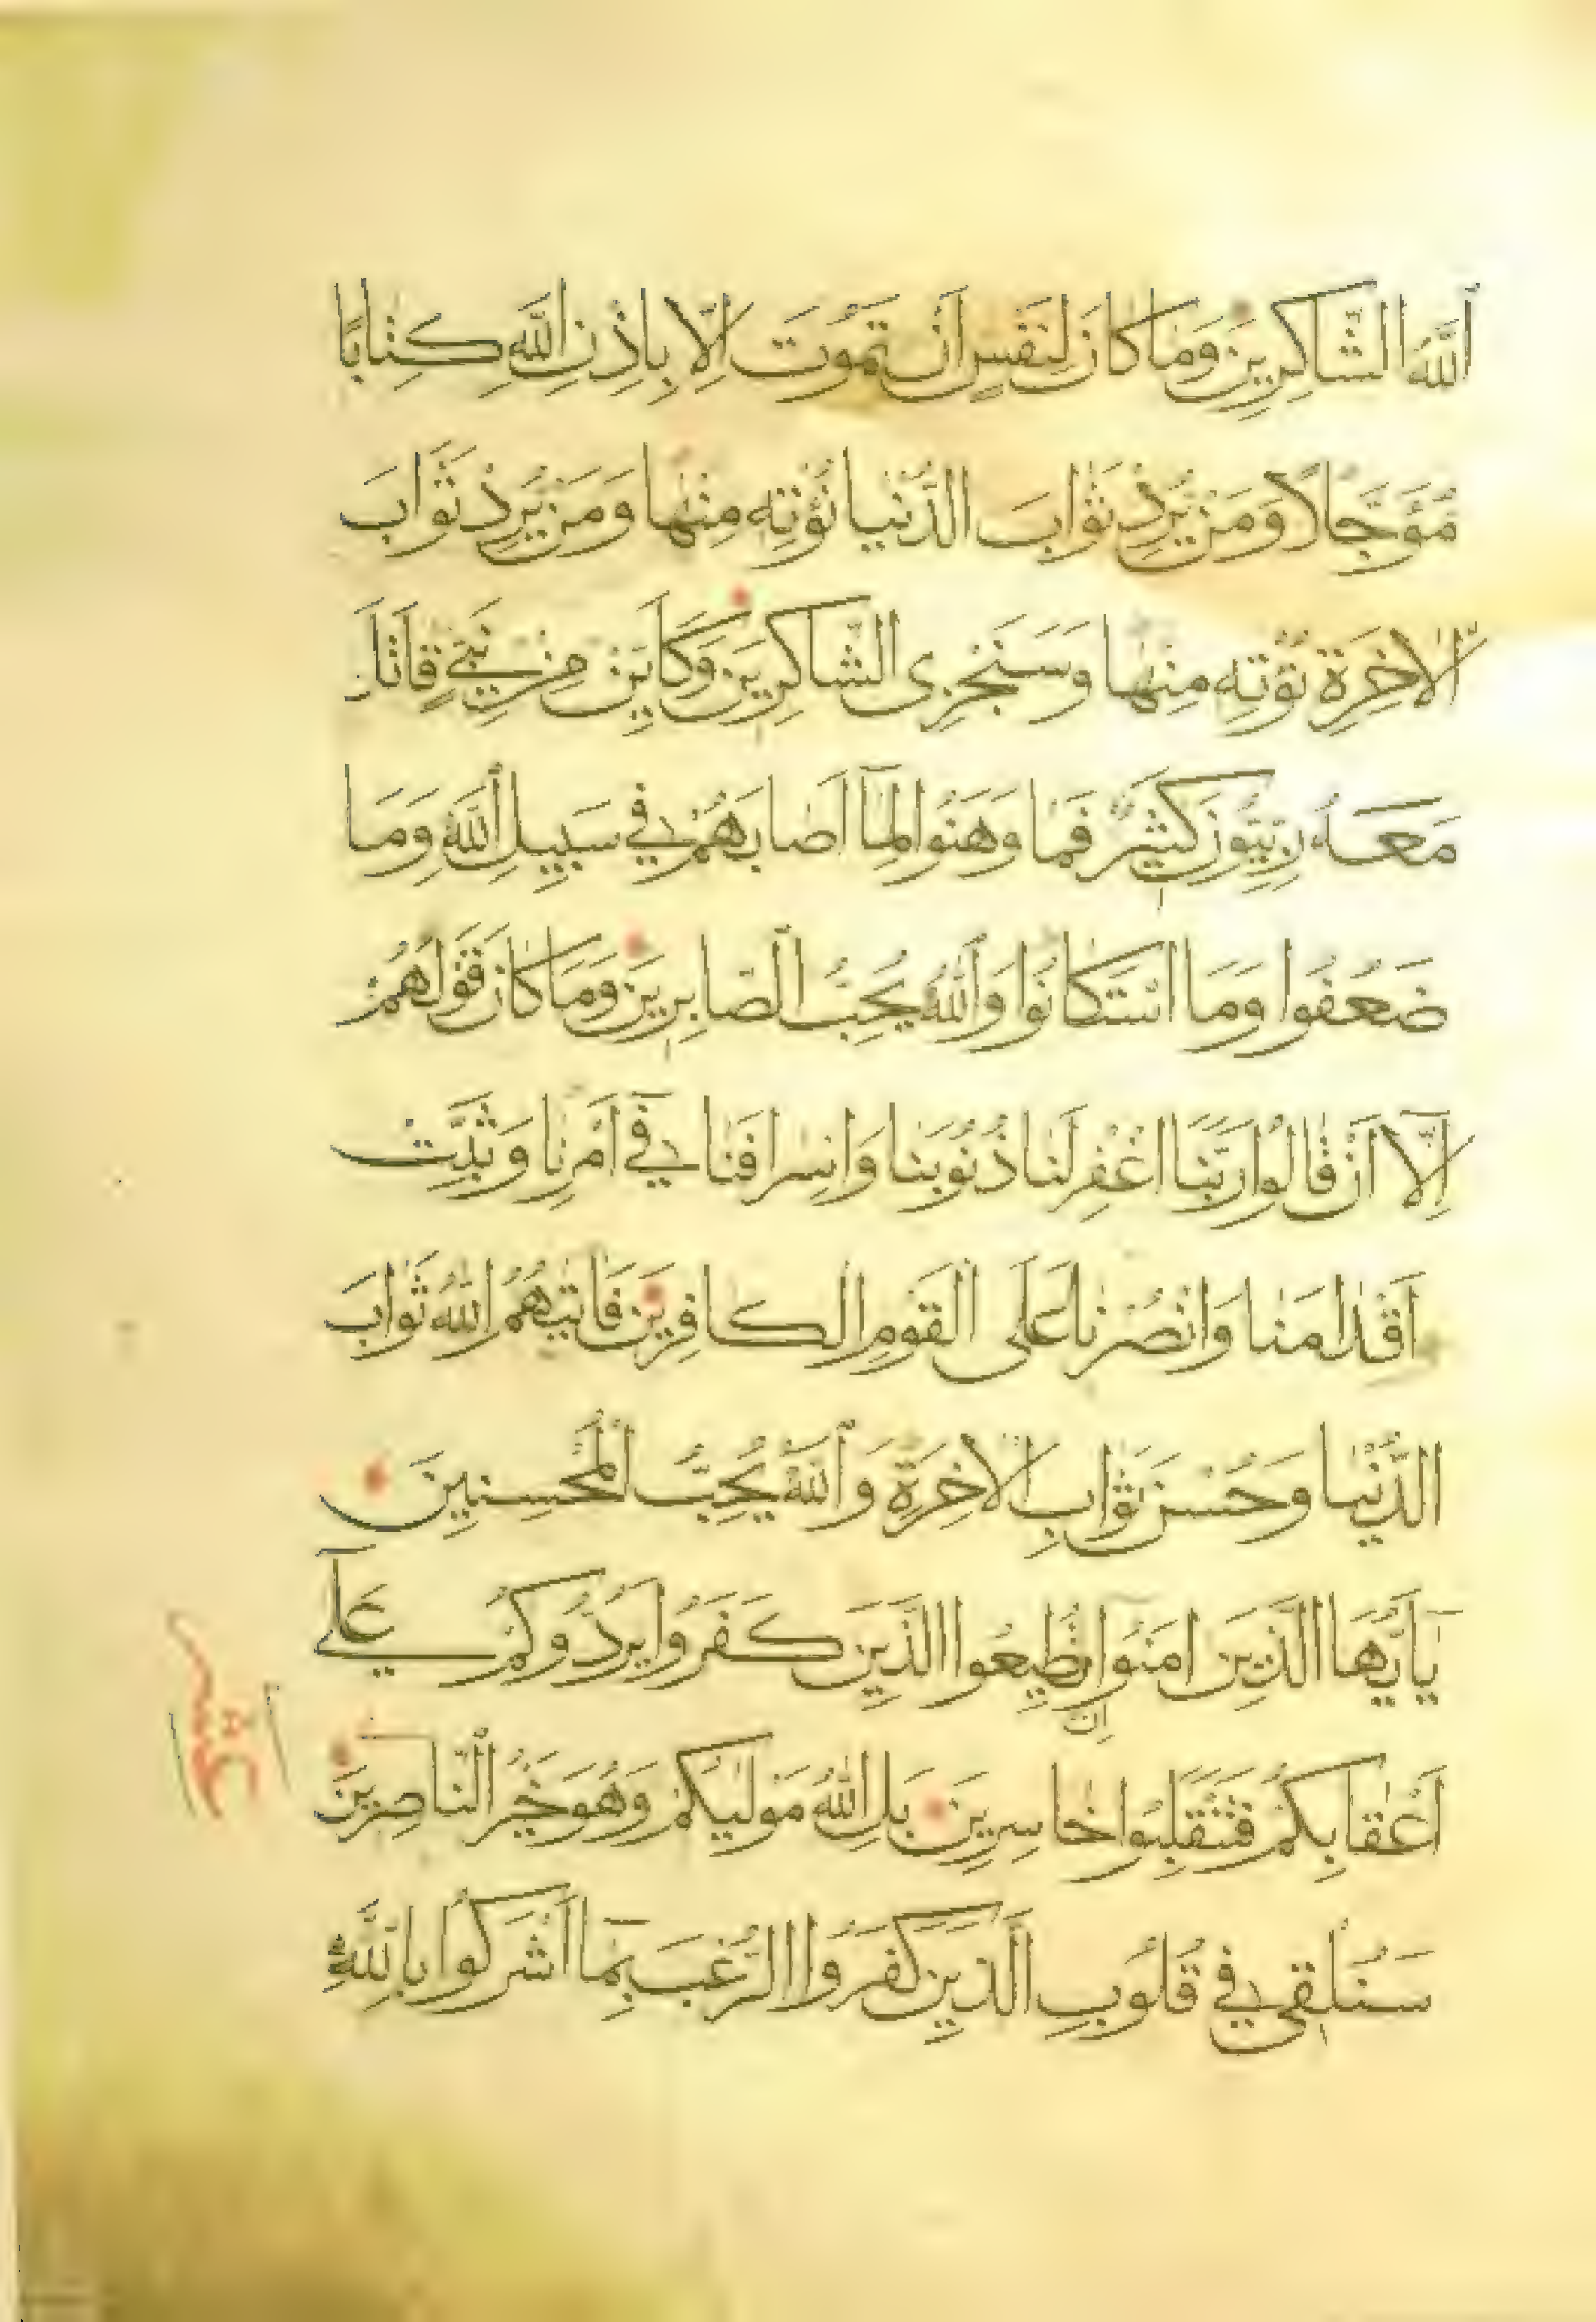 اَللّٰهُ الشَّاكِرِينَ وَمَا كَانَ لِنَفْسٍ اَنْ تَمُوتَ اِلَّا بِاِذْنِ اللّٰهِ كِتَابًا
مُؤَجَّلًا وَمَنْ يُرِدْ ثَوَابَ الدُّنْيَا نُؤْتِهِ مِنْهَا وَمَنْ يُرِدْ ثَوَابَ
الْاٰخِرَةِ نُؤْتِهِ مِنْهَا وَسَنَجْزِى الشَّاكِرِينَ وَكَاَيِّنْ مِنْ نَبِىٍّ قَاتَلَ
مَعَهُ رِبِّيُّونَ كَثِيرٌ فَمَا وَهَنُوا لِمَٓا اَصَابَهُمْ فِى سَبِيلِ اللّٰهِ وَمَا
ضَعُفُوا وَمَا اسْتَكَانُوا وَاللّٰهُ يُحِبُّ الصَّابِرِينَ وَمَا كَانَ قَوْلَهُمْ
اِلَّٓا اَنْ قَالُوا رَبَّنَا اغْفِرْ لَنَا ذُنُوبَنَا وَاِسْرَافَنَا فِٓى اَمْرِنَا وَثَبِّتْ
اَقْدَامَنَا وَانْصُرْنَا عَلَى الْقَوْمِ الْكَافِرِينَ فَاٰتٰيهُمُ اللّٰهُ ثَوَابَ
الدُّنْيَا وَحُسْنَ ثَوَابِ الْاٰخِرَةِ وَاللّٰهُ يُحِبُّ الْمُحْسِنِينَ
يَٓا اَيُّهَا الَّذِينَ اٰمَنُٓوا تُطِيعُوا الَّذِينَ كَفَرُوا يَرُدُّوكُمْ عَلٰٓى
اِنْ
اَعْقَابِكُمْ فَتَنْقَلِبُوا خَاسِرِينَ بَلِ اللّٰهُ مَوْلٰيكُمْ وَهُوَ خَيْرُ النَّاصِرِينَ
سَنُلْقِى فِى قُلُوبِ الَّذِينَ كَفَرُوا الرُّعْبَ بِمَٓا اَشْرَكُوا بِاللّٰهِ